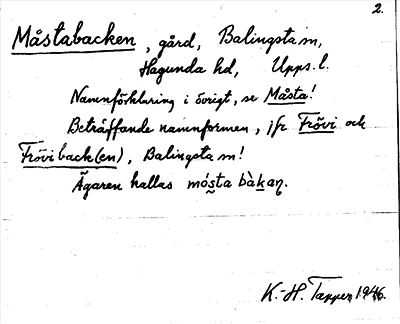 2.
Måstabacken, gård, Balingsta sn,
Hagunda hd, Upps. l.
Namnförklaring i övrigt, se Måsta!
Beträffande namnformen, jfr Frövi och
Frövi back(en), Balingsta sn!
Ägaren kallas mósta bàkan.
K.-H. Tapper 1946.